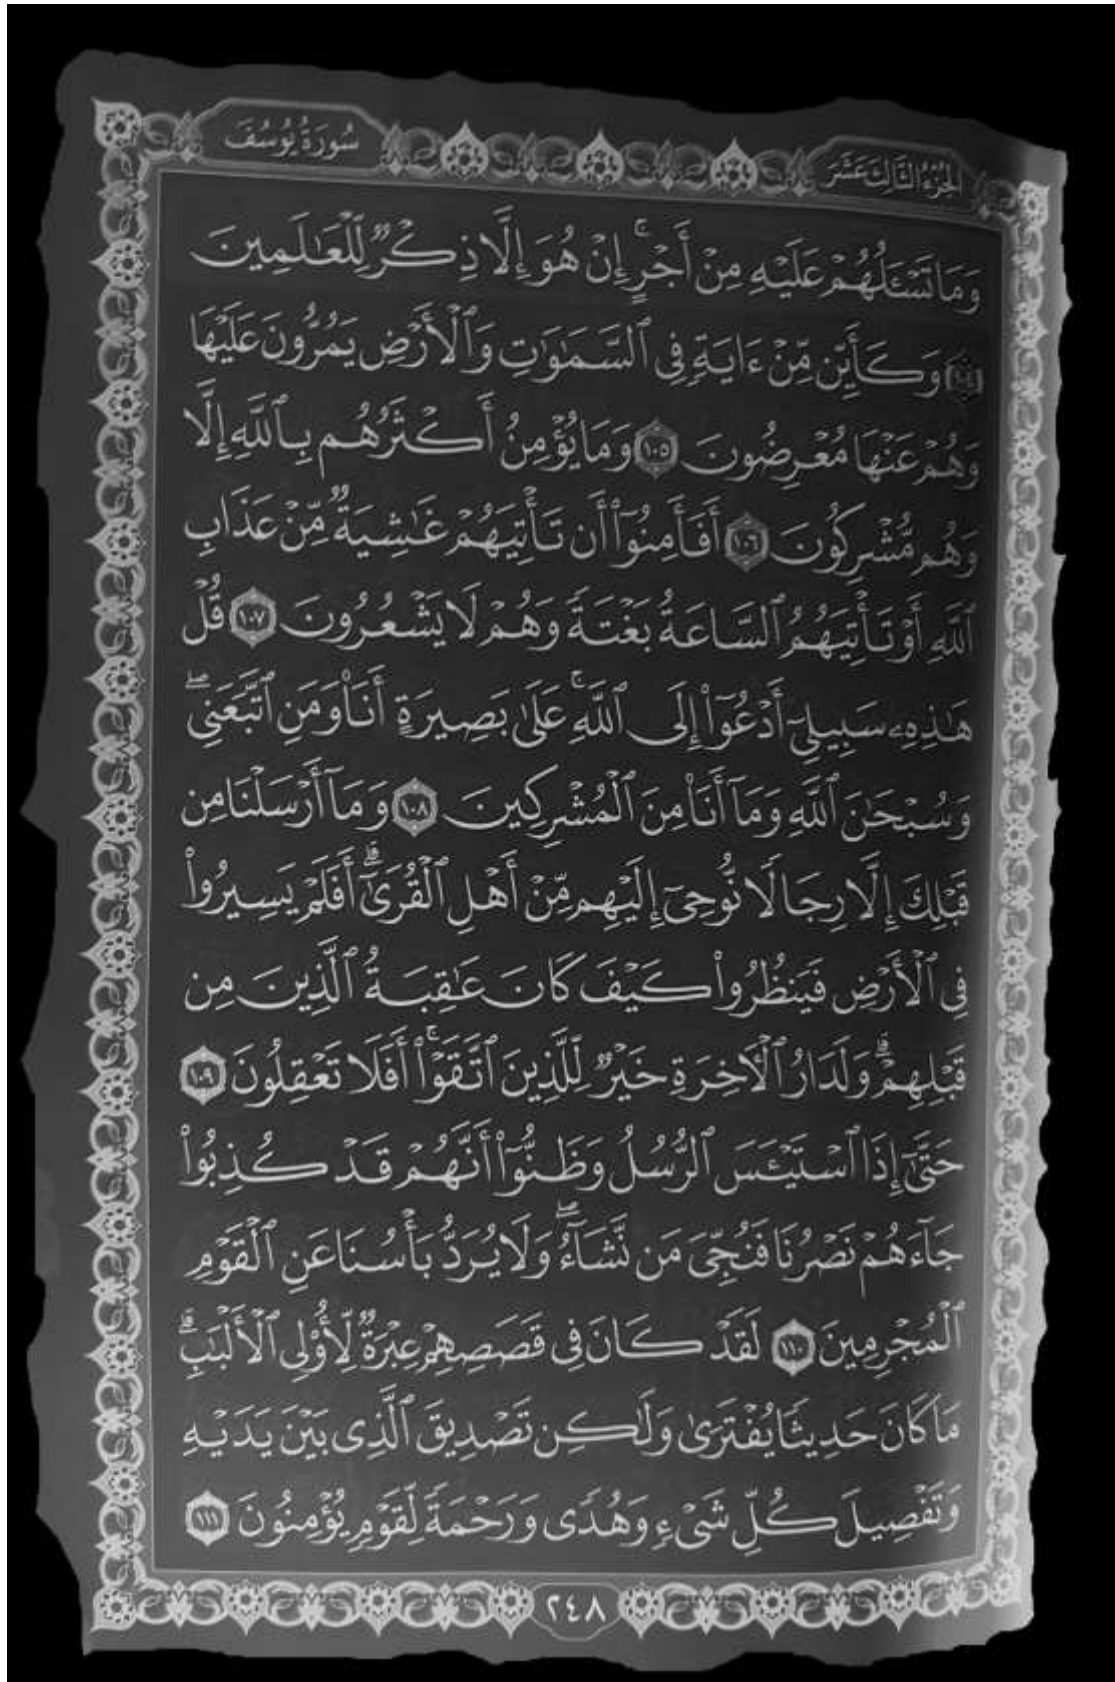 الجزء الثالث عشر
سورة يوسف
وَمَا تَسْـَٔلُهُمْ عَلَيْهِ مِنْ أَجْرٍ ۚ إِنْ هُوَ إِلَّا ذِكْرٌ لِّلْعَـٰلَمِينَ
١٠٤ وَكَأَيِّن مِّنْ ءَايَةٍ فِى ٱلسَّمَـٰوَٰتِ وَٱلْأَرْضِ يَمُرُّونَ عَلَيْهَا
وَهُمْ عَنْهَا مُعْرِضُونَ ١٠٥ وَمَا يُؤْمِنُ أَكْثَرُهُم بِٱللَّهِ إِلَّا
وَهُم مُّشْرِكُونَ ١٠٦ أَفَأَمِنُوٓا۟ أَن تَأْتِيَهُمْ غَـٰشِيَةٌ مِّنْ عَذَابِ
ٱللَّهِ أَوْ تَأْتِيَهُمُ ٱلسَّاعَةُ بَغْتَةً وَهُمْ لَا يَشْعُرُونَ ١٠٧ قُلْ
هَـٰذِهِۦ سَبِيلِىٓ أَدْعُوٓا۟ إِلَى ٱللَّهِ ۚ عَلَىٰ بَصِيرَةٍ أَنَا۠ وَمَنِ ٱتَّبَعَنِى ۖ
وَسُبْحَـٰنَ ٱللَّهِ وَمَآ أَنَا۠ مِنَ ٱلْمُشْرِكِينَ ١٠٨ وَمَآ أَرْسَلْنَا مِن
قَبْلِكَ إِلَّا رِجَالًا نُّوحِىٓ إِلَيْهِم مِّنْ أَهْلِ ٱلْقُرَىٰٓ ۗ أَفَلَمْ يَسِيرُوا۟
فِى ٱلْأَرْضِ فَيَنظُرُوا۟ كَيْفَ كَانَ عَـٰقِبَةُ ٱلَّذِينَ مِن
قَبْلِهِمْ ۗ وَلَدَارُ ٱلْـَٔاخِرَةِ خَيْرٌ لِّلَّذِينَ ٱتَّقَوْا۟ ۚ أَفَلَا تَعْقِلُونَ ١٠٩
حَتَّىٰٓ إِذَا ٱسْتَيْـَٔسَ ٱلرُّسُلُ وَظَنُّوٓا۟ أَنَّهُمْ قَدْ كُذِبُوا۟
جَآءَهُمْ نَصْرُنَا فَنُجِّىَ مَن نَّشَآءُ ۖ وَلَا يُرَدُّ بَأْسُنَا عَنِ ٱلْقَوْمِ
ٱلْمُجْرِمِينَ ١١٠ لَقَدْ كَانَ فِى قَصَصِهِمْ عِبْرَةٌ لِّأُو۟لِى ٱلْأَلْبَـٰبِ ۗ
مَا كَانَ حَدِيثًا يُفْتَرَىٰ وَلَـٰكِن تَصْدِيقَ ٱلَّذِى بَيْنَ يَدَيْهِ
وَتَفْصِيلَ كُلِّ شَىْءٍ وَهُدًى وَرَحْمَةً لِّقَوْمٍ يُؤْمِنُونَ ١١١
٢٤٨